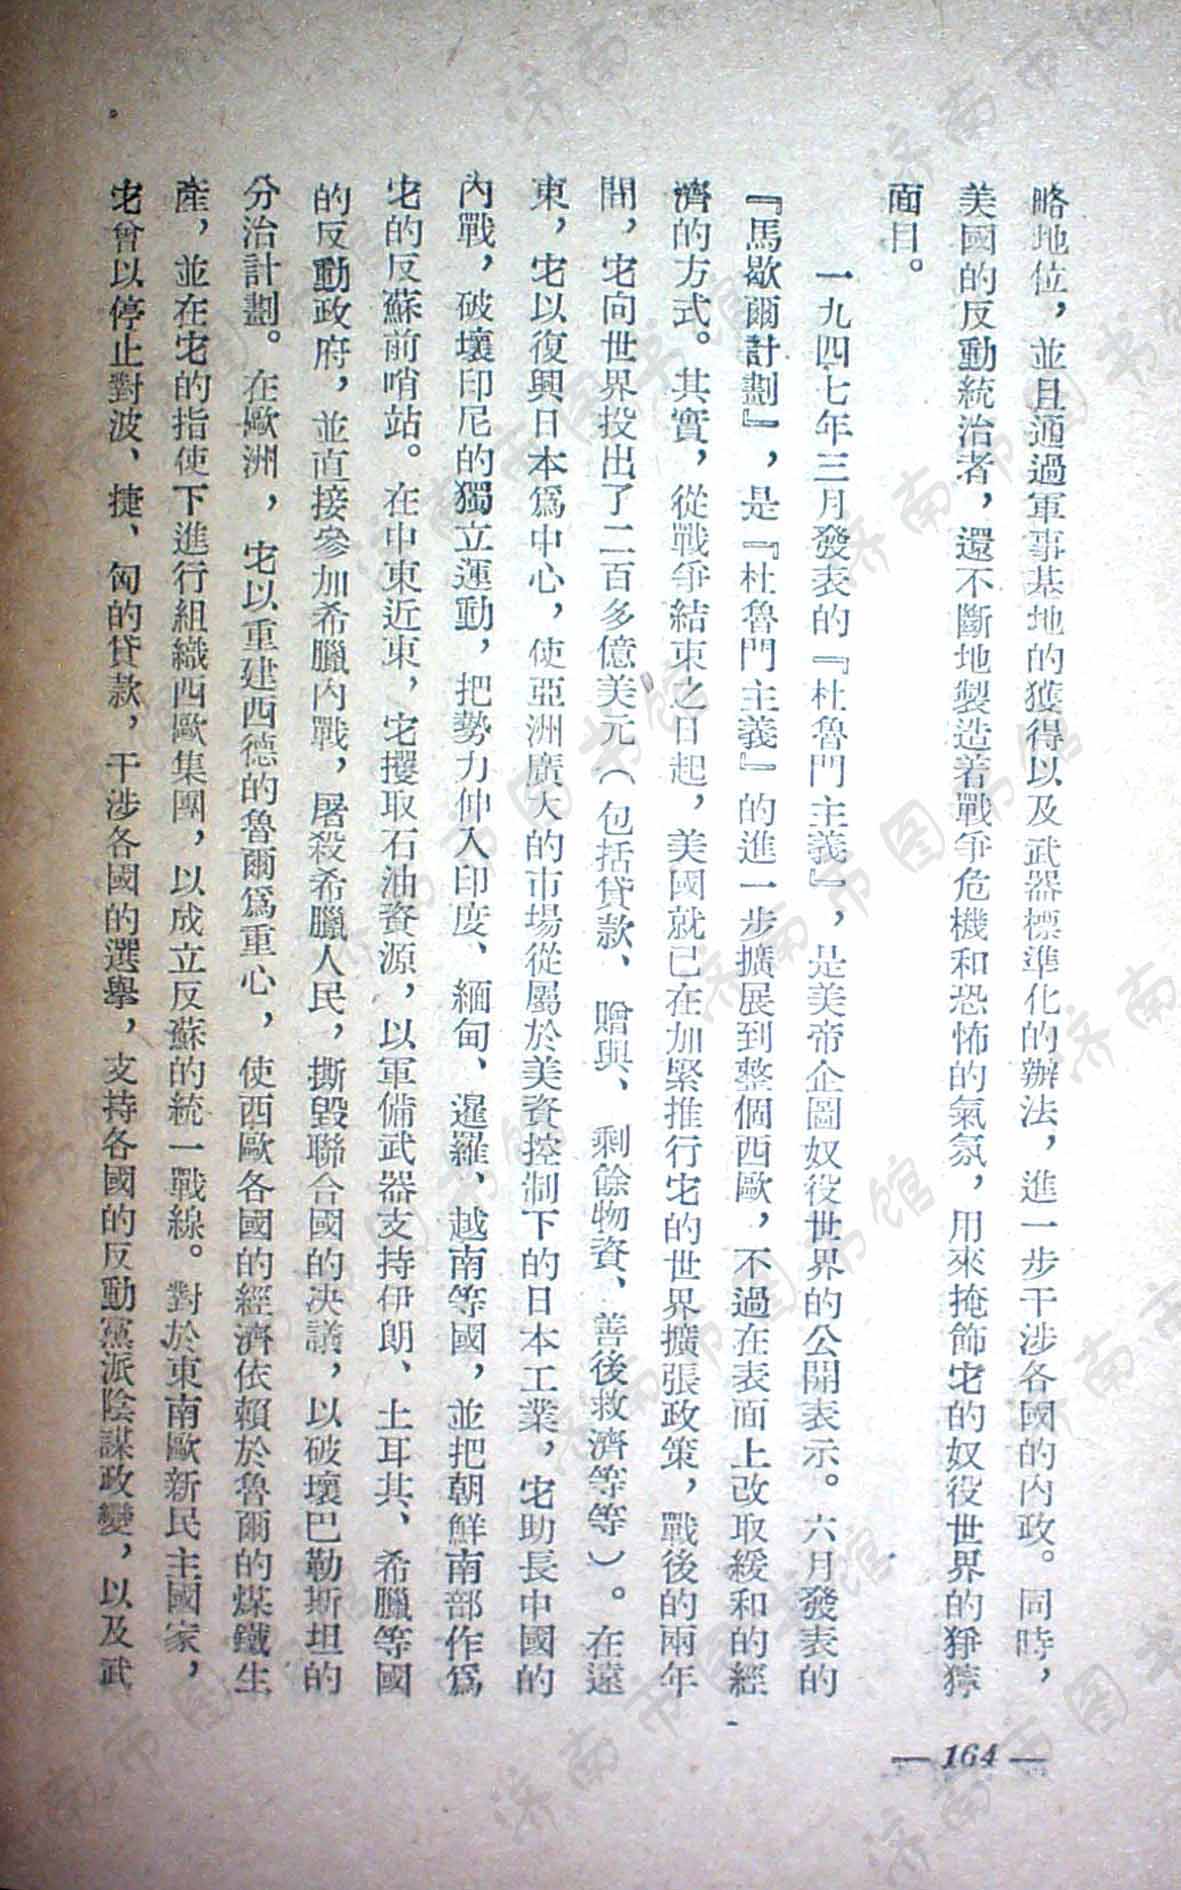 略地位，並且通過軍事基地的獲得以及武器標準化的辦法，進一步干涉各國的內政。同時，
美國的反動統治者，還不斷地製造着戰爭危機和恐怖的氣氛，用來掩飾牠的奴役世界的猙獰
面目。
一九四七年三月發表的『杜魯門主義』，是美帝企圖奴役世界的公開表示。六月發表的
『馬歇爾計劃』，是『杜魯門主義』的進一步擴展到整個西歐，不過在表面上改取緩和的經
濟的方式。其實，從戰爭結束之日起，美國就已在加緊推行牠的世界擴張政策，戰後的兩年
間，牠向世界投出了二百多億美元（包括貸款、贈與、剩餘物資、善後救濟等等）。在遠
東，牠以復興日本爲中心，使亞洲廣大的市場從屬於美資控制下的日本工業，牠助長中國的
內戰，破壞印尼的獨立運動，把勢力伸入印度、緬甸、暹羅、越南等國，並把朝鮮南部作爲
牠的反蘇前哨站。在中東近東，牠攫取石油資源，以軍備武器支持伊朗、土耳其、希臘等國
的反動政府，並直接參加希臘內戰，屠殺希臘人民，撕毀聯合國的決議，以破壞巴勒斯坦的
分治計劃。在歐洲，牠以重建西德的魯爾爲重心，使西歐各國的經濟依賴於魯爾的煤鐵生
產，並在牠的指使下進行組織西歐集團，以成立反蘇的統一戰線。對於東南歐新民主國家，
牠曾以停止對波、捷、匈的貸款，干涉各國的選舉，支持各國的反動黨派陰謀政變，以及武
— 164 —
济南市图书馆